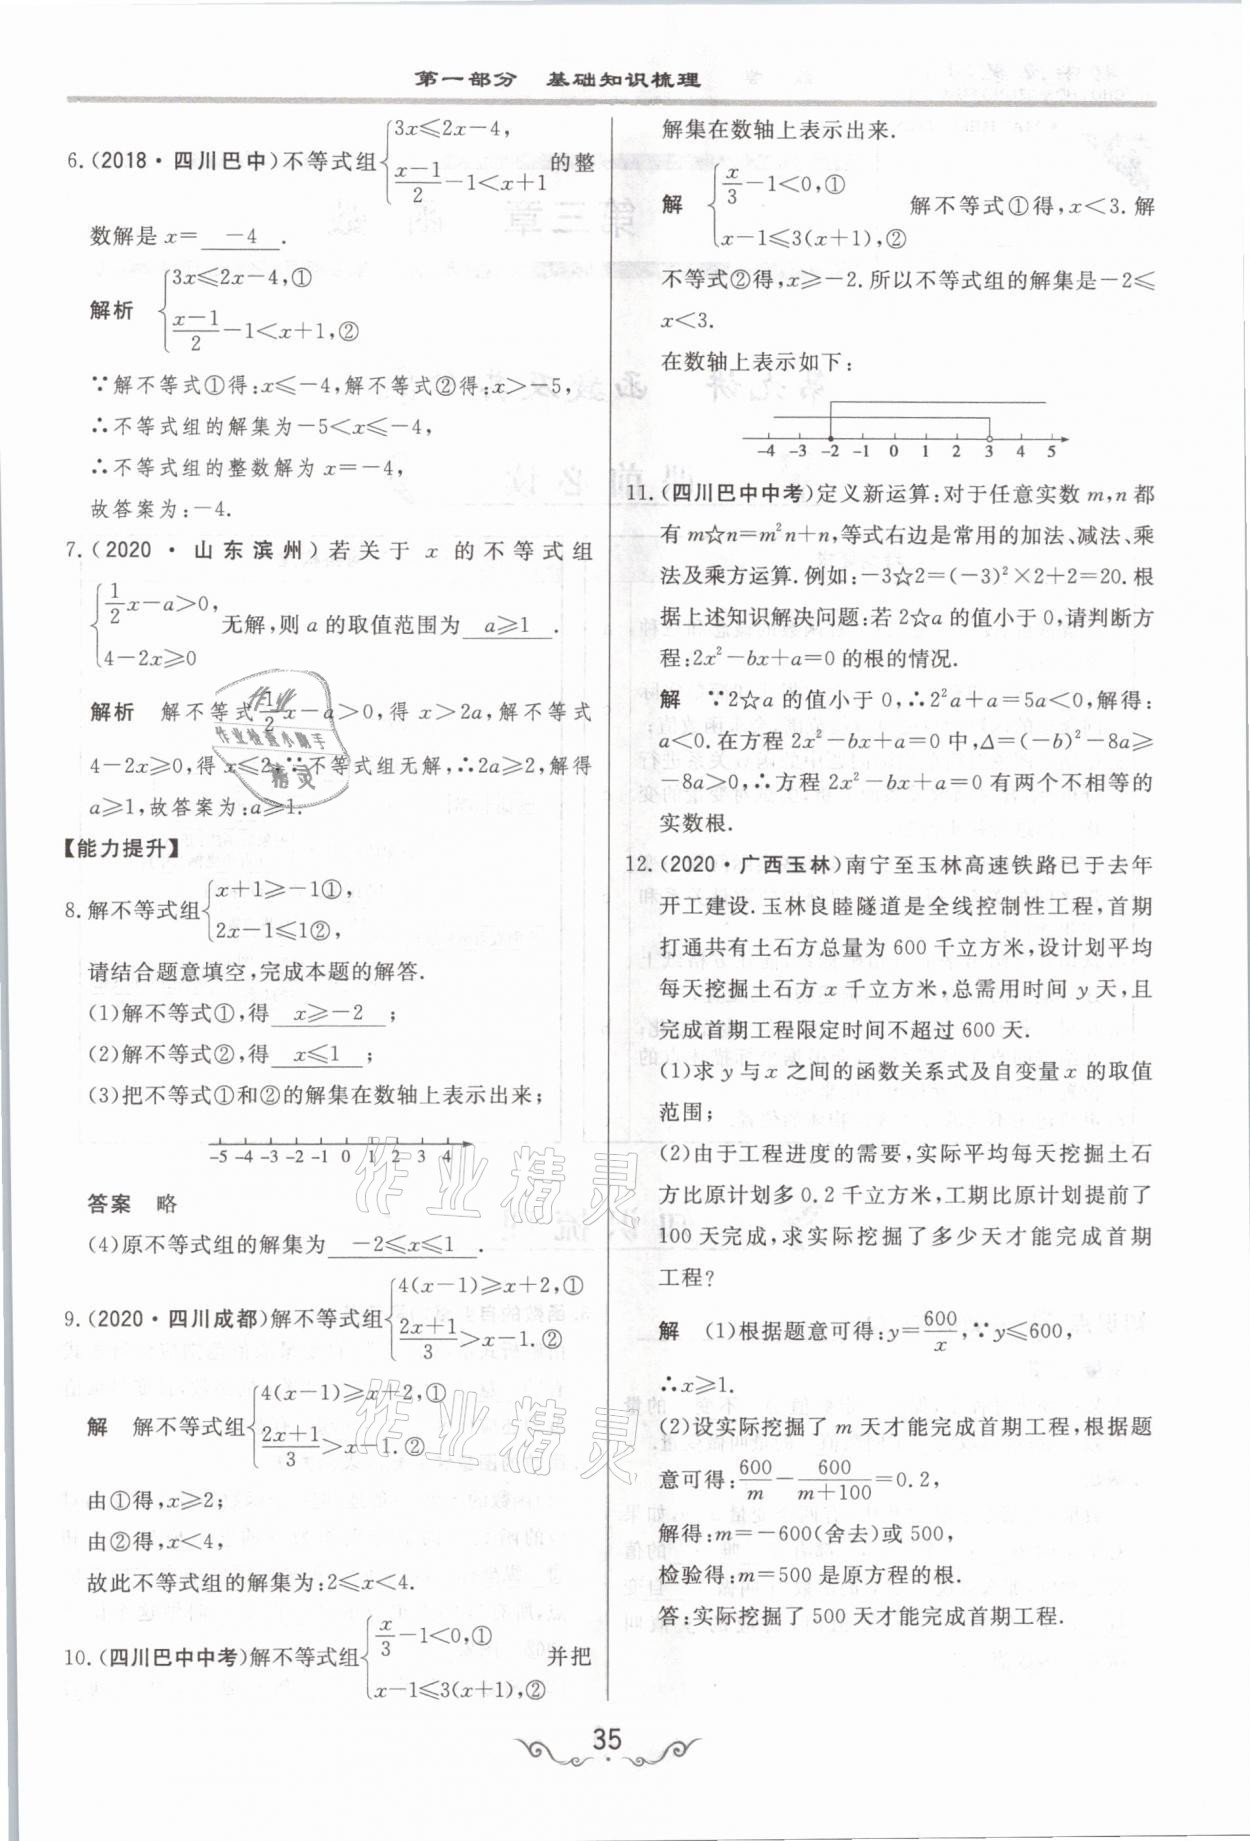 第一部分 基础知识梳理
6.(2018·四川巴中)不等式组{3x≤2x−4, (x−1)/2−1<x+1 的整
数解是 x= −4 .
解析 {3x≤2x−4,① (x−1)/2−1<x+1,②
∵解不等式①得:x≤−4,解不等式②得:x>−5,
∴不等式组的解集为−5<x≤−4,
∴不等式组的整数解为 x=−4,
故答案为:−4.
7.(2020·山东滨州)若关于 x 的不等式组
{1/2x−a>0, 4−2x≥0 无解,则 a 的取值范围为 a≥1 .
解析 解不等式1/2x−a>0,得 x>2a,解不等式
4−2x≥0,得 x≤2.∵不等式组无解,∴2a≥2,解得
a≥1,故答案为:a≥1.
【能力提升】
8.解不等式组{x+1≥−1①, 2x−1≤1②,
请结合题意填空,完成本题的解答.
(1)解不等式①,得 x≥−2 ;
(2)解不等式②,得 x≤1 ;
(3)把不等式①和②的解集在数轴上表示出来;
−5 −4 −3 −2 −1 0 1 2 3 4
答案 略
(4)原不等式组的解集为 −2≤x≤1 .
9.(2020·四川成都)解不等式组{4(x−1)≥x+2,① (2x+1)/3>x−1.②
解 解不等式组{4(x−1)≥x+2,① (2x+1)/3>x−1.②
由①得,x≥2;
由②得,x<4,
故此不等式组的解集为:2≤x<4.
10.(四川巴中中考)解不等式组{x/3−1<0,① x−1≤3(x+1),② 并把
解集在数轴上表示出来.
解 {x/3−1<0,① x−1≤3(x+1),② 解不等式①得,x<3.解
不等式②得,x≥−2.所以不等式组的解集是−2≤
x<3.
在数轴上表示如下:
−4 −3 −2 −1 0 1 2 3 4 5
11.(四川巴中中考)定义新运算:对于任意实数 m,n 都
有 m☆n=m²n+n,等式右边是常用的加法、减法、乘
法及乘方运算.例如:−3☆2=(−3)²×2+2=20.根
据上述知识解决问题:若 2☆a 的值小于 0,请判断方
程:2x²−bx+a=0 的根的情况.
解 ∵2☆a 的值小于 0,∴2²a+a=5a<0,解得:
a<0.在方程 2x²−bx+a=0 中,Δ=(−b)²−8a≥
−8a>0,∴方程 2x²−bx+a=0 有两个不相等的
实数根.
12.(2020·广西玉林)南宁至玉林高速铁路已于去年
开工建设.玉林良睦隧道是全线控制性工程,首期
打通共有土石方总量为 600 千立方米,设计划平均
每天挖掘土石方 x 千立方米,总需用时间 y 天,且
完成首期工程限定时间不超过 600 天.
(1)求 y 与 x 之间的函数关系式及自变量 x 的取值
范围;
(2)由于工程进度的需要,实际平均每天挖掘土石
方比原计划多 0.2 千立方米,工期比原计划提前了
100 天完成,求实际挖掘了多少天才能完成首期
工程?
解 (1)根据题意可得:y=600/x,∵y≤600,
∴x≥1.
(2)设实际挖掘了 m 天才能完成首期工程,根据题
意可得:600/m−600/(m+100)=0.2,
解得:m=−600(舍去)或 500,
检验得:m=500 是原方程的根.
答:实际挖掘了 500 天才能完成首期工程.
35
作业
作业检查小助手
精灵
作业精灵
作业精灵